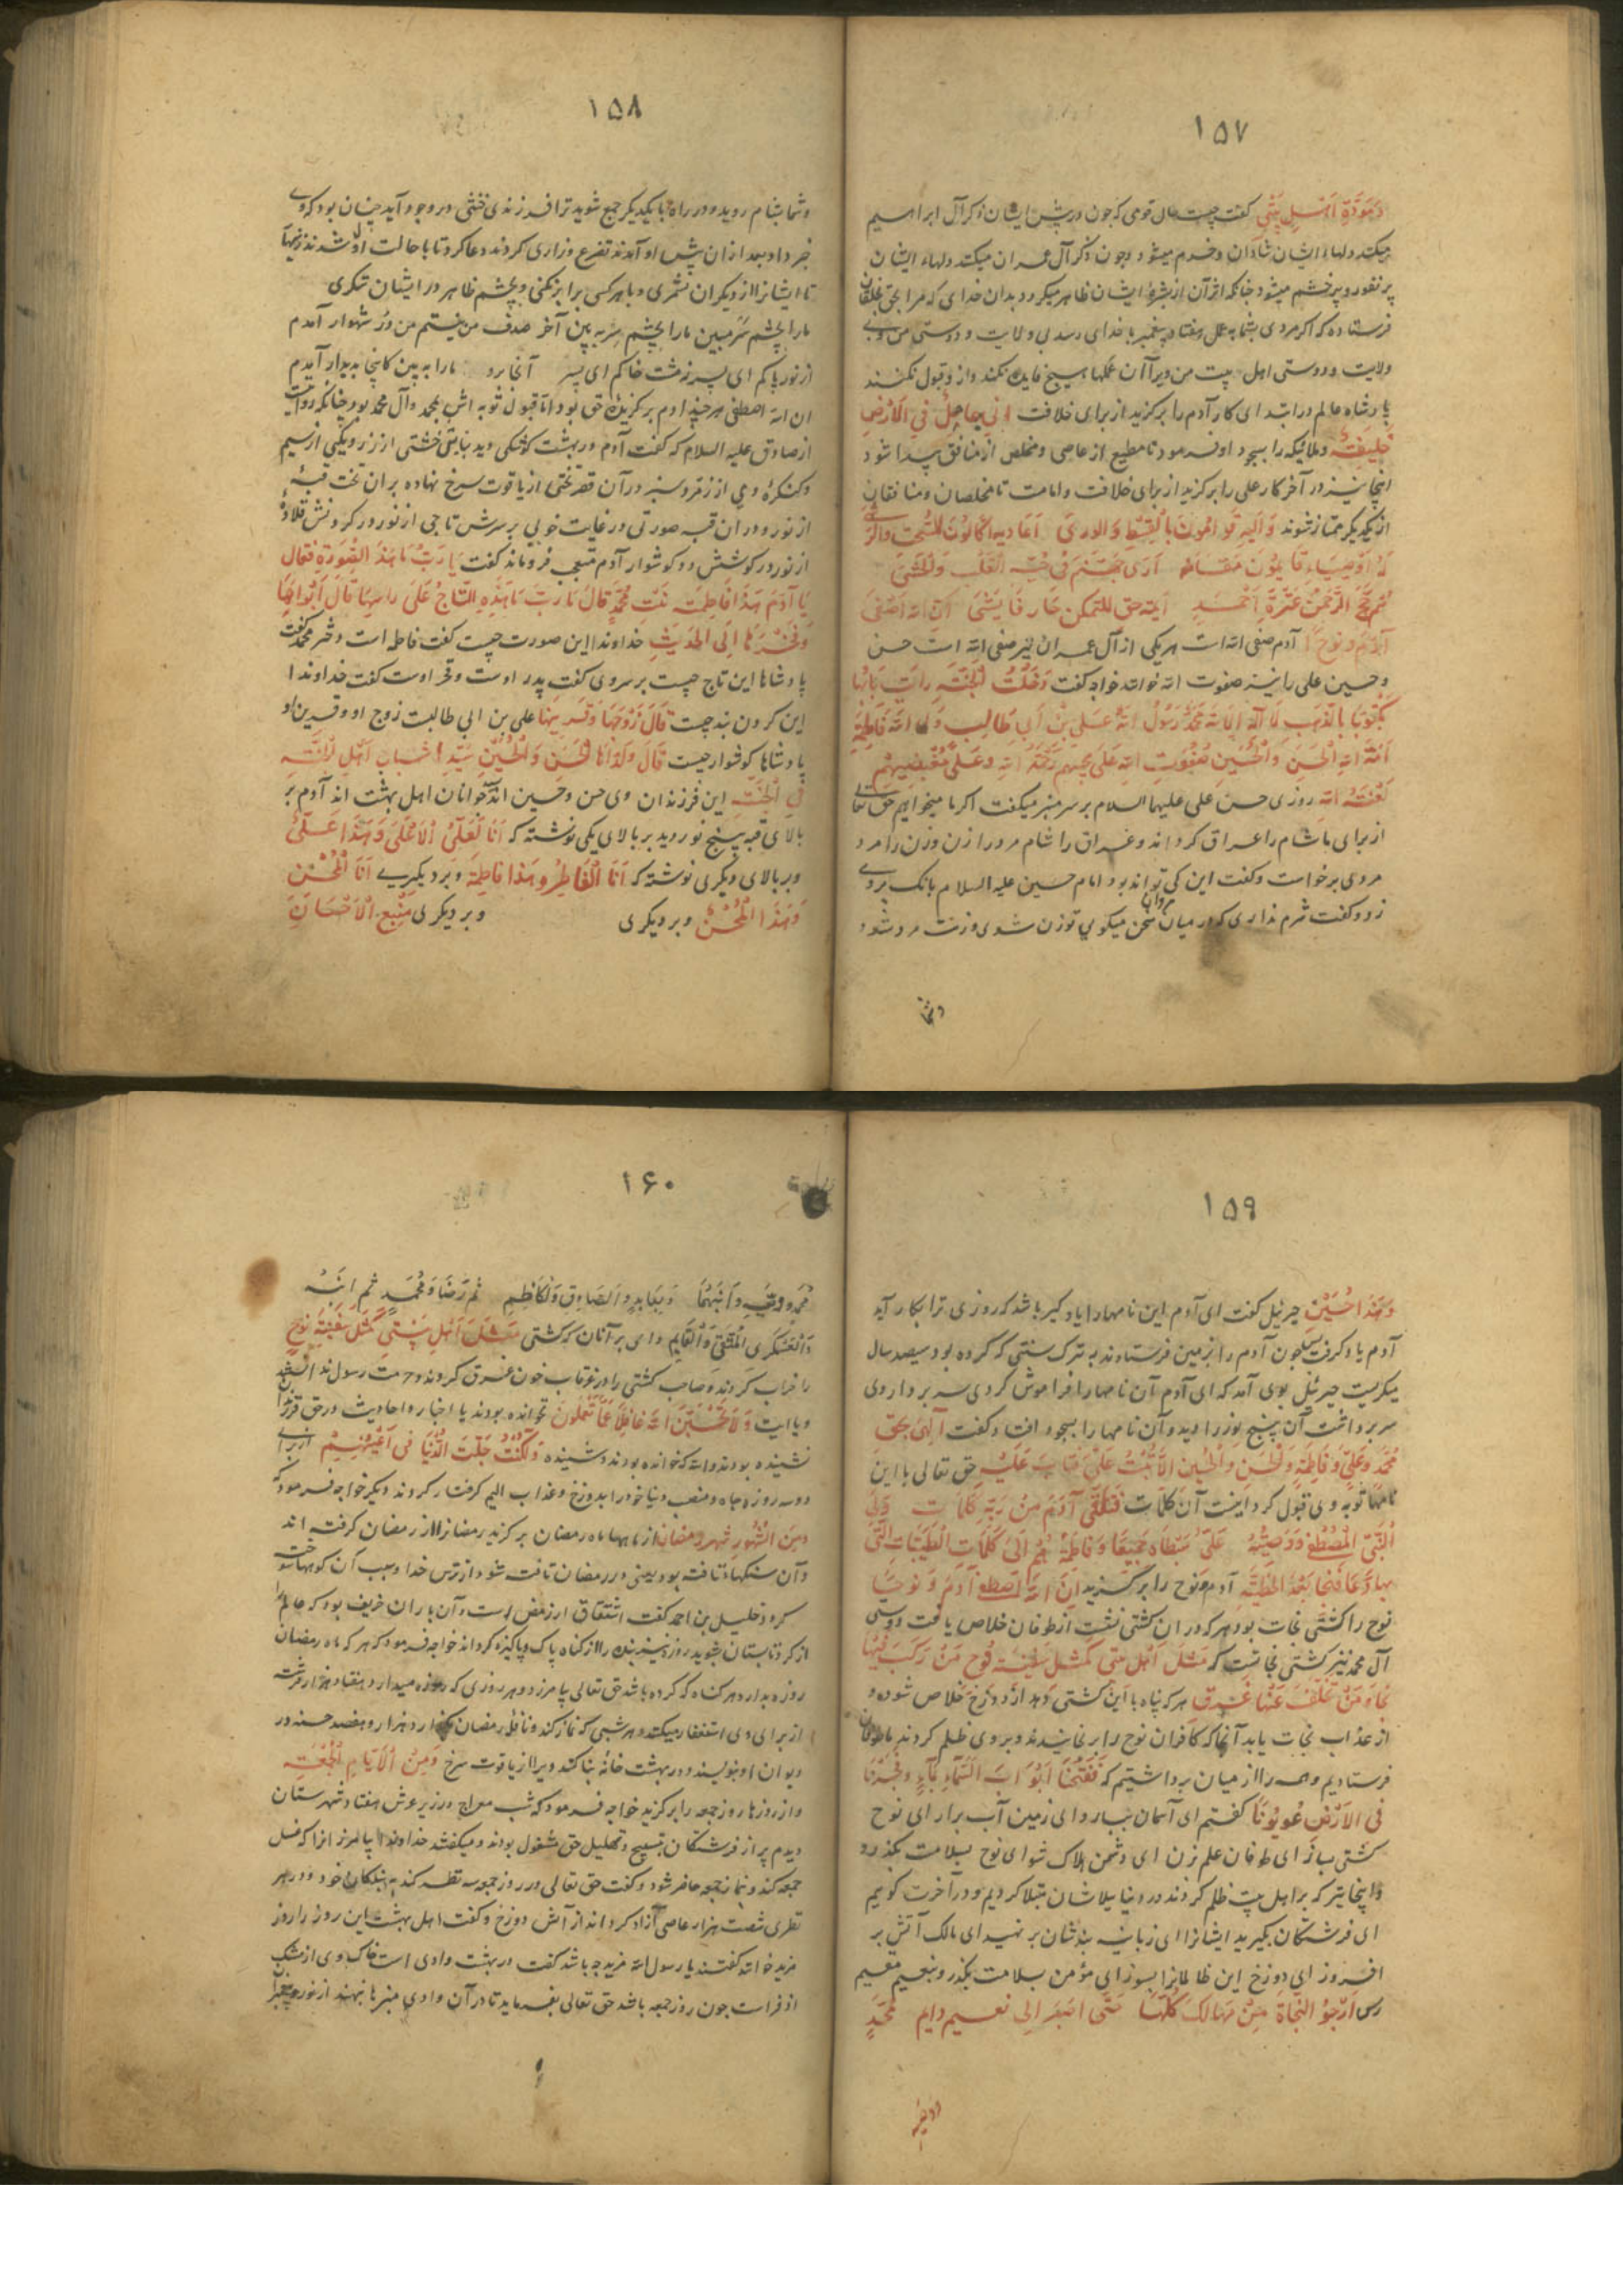 ۱۵۷
وَمَوَدَّةِ اَهْلِ بَيْتِي گفت چیست حال قومی که چون در پیش ایشان ذکر آل ابراهیم
میکنند دلهاء ایشان شادان و خرم میشود و چون ذکر آل عمران میکنند دلهاء ایشان
پر نفور و پر خشم میشود چنانکه اثر آن از بشرهٔ ایشان ظاهر میگردد بدان خدای که مرا بحق بخلقان
فرستاده که اگر مردی بشما به عمل هفتاد پیغمبر با خدای رسد بی ولایت و دوستی من و بی
ولایت و دوستی اهل بیت من ویرا آن عملها هیچ فایده نکند و از و قبول نکنند
پادشاه عالم در ابتدای کار آدم را برگزید از برای خلافت اِنّی جاعِلٌ فِي الاَرْضِ
خَلیفَةً و ملائیکه را بسجود او فرمود تا مطیع از عاصی و مخلص از منافق پیدا شود
اینجا نیز در آخر کار علی را برگزید از برای خلافت و امامت تا مخلصان و منافقان
از یکدیگر ممتاز شوند
آدم صفی الله است هر یکی از آل عمران نیز صفی الله است حسن
و حسین علی را نیز صفوت الله خواند خواجه گفت دَخَلْتُ الْجَنَّةَ رَاَيْتُ بَابَهَا
مَكْتُوبًا بِالذَّهَبِ لَا اِلٰهَ اِلَّا اللهُ مُحَمَّدٌ رَسُولُ اللهِ عَلِيُّ بْنُ اَبِي طَالِبٍ وَلِيُّ اللهِ فَاطِمَةُ
اَمَةُ اللهِ الْحَسَنُ وَالْحُسَيْنُ صَفْوَتُ اللهِ عَلَی مُحِبِّيهِمْ رَحْمَةُ اللهِ وَعَلَی مُبْغِضِيهِمْ
لَعْنَةُ اللهِ روزی حسن علی علیهما السلام بر سر منبر میگفت اگر ما میخواهیم حق تعالی
از برای ما شام را عراق گرداند و عراق را شام مرد را زن و زن را مرد
مردی برخاست و گفت این کی تواند بود امام حسین علیه السلام بانگ بروی
زد و گفت شرم نداری که در میان مردان سخن میگویی تو زن شدی و زنت مرد شد
وشما
۱۵۸
و شما بشام روید و در راه با یکدیگر جمع شوید ترا فرزندی خنثی در وجود آید چنان بود که وی
خبر داد بعد از ان پیش او آمدند تضرع و زاری کردند دعا کرد تا با حالت اول شدند زینهار
تا ایشانرا از دیگران نشمری و با هر کسی برابر نکنی و بچشم ظاهر در ایشان ننگری
ما را بچشم سر مبین ما را بچشم سر به بین آخر صدف من نیستم من در شهوار آمدم
از نور پاکم ای پسر نه مشت خاکم ای پسر آنجا برو ما را به بین کاینجا بدیدار آمدم
ان الله اصطفی هر چند ادم برگزیدهٔ حق بود اما قبول توبه اش بمحمد و آل محمد بود چنانکه روایت
از صادق علیه السلام که گفت آدم در بهشت کوشکی دید بنایش خشتی از زر و یکی از سیم
و کنگرهٔ وی از زمرد سبز در آن قصر تختی از یاقوت سرخ نهاده بر ان تخت قبهٔ
از نور و در ان قبه صورتی در غایت خوبی بر سرش تاجی از نور در گردنش قلادهٔ
از نور در گوشش دو گوشوار آدم متعجب فروماند گفت يَا رَبِّ مَا هٰذِهِ الصُّورَةُ فَقَالَ
يَا آدَمُ هٰذَا فَاطِمَةُ بِنْتُ مُحَمَّدٍ قَالَ يَا رَبِّ مَا هٰذِهِ التَّاجُ عَلَى رَاسِهَا قَالَ اَبُوهَا
وَفَخْرُهَا اِلَى الْحَدِيثِ خداوندا این صورت چیست گفت فاطمه است دختر محمد گفت
پادشاها این تاج چیست بر سر وی گفت پدر اوست و فخر اوست گفت خداوندا
این گردن بند چیست قَالَ زَوْجُهَا وَقَرِينُهَا علی بن ابی طالبست زوج او و قرین او
پادشاها گوشوار چیست قَالَ وَلَدَاهَا الْحَسَنُ وَالْحُسَيْنُ سَيِّدَا شَبَابِ اَهْلِ الْجَنَّةِ
فِي الْجَنَّةِ این فرزندان وی حسن و حسین اند جوانان اهل بهشت اند آدم بر
بالای قبه پنج نور دید بر بالای یکی نوشته که اَنَا الْعَلِيُّ الْاَعْلَى وَهٰذَا عَلِيٌّ
و بر بالای دیگری نوشته که اَنَا الْفَاطِرُ وَهٰذَا فَاطِمَةُ و بر دیگری اَنَا الْمُحْسِنُ
وَهٰذَا الْمُحْسَنُ و بر دیگری و بر دیگری مَنْبَعُ الْاِحْسَانِ
۱۵۹
وَهٰذَا حُسَيْنٌ جبرئیل گفت ای آدم این نامها را یاد گیر باشد که روزی ترا بکار آید
آدم یاد گرفت پس چون آدم را بزمین فرستادند به ترک سنتی که کرده بود سیصد سال
میگریست جبرئیل بوی آمد که ای آدم آن نامها را فراموش کردی سر بر دار وی
سر برداشت آن پنج نور را دید و آن نامها را بسجود افتاد و گفت اِلٰهِي بِحَقِّ
مُحَمَّدٍ وَعَلِيٍّ وَفَاطِمَةَ وَالْحَسَنِ وَالْحُسَيْنِ اِلَّا تُبْتَ عَلَيَّ فَتَابَ عَلَيْهِ حق تعالی با این
نامها توبه وی قبول کرد اینست آن کلمات فَتَلَقَّى آدَمُ مِنْ رَبِّهِ كَلِمَاتٍ
اَلنَّبِيُّ الْمُصْطَفَى وَوَصِيُّهُ عَلِيٌّ سِبْطَاهُ جَمِيعًا وَفَاطِمَةُ هُمْ اُلی كَلِمَاتِ الطَّيِّبَاتِ الَّتِي
بِهَا دَعَا فَنَجَا بَعْدَ الْخَطِيَّةِ آدم و نوح را برگزید اِنَّ اللهَ اصْطَفَى آدَمَ وَنُوحًا
نوح را کشتی نجات بود هر که در ان کشتی نشست از طوفان خلاص یافت دوستی
آل محمد نیز کشتی نجاتست که مَثَلُ اَهْلِ بَيْتِي كَمَثَلِ سَفِينَةِ نُوحٍ مَنْ رَكِبَ فِيهَا
نَجَا وَمَنْ تَخَلَّفَ عَنْهَا غَرِقَ هر که پناه با این کشتی دهد از دوزخ خلاص شود و
از عذاب نجات یابد آنجا که کافران نوح را برنجانیدند و بر وی ظلم کردند ما طوفان
فرستادیم و همه را از میان برداشتیم که فَفَتَحْنَا اَبْوَابَ السَّمَاءِ بِمَاءٍ وَفَجَّرْنَا
فِي الْاَرْضِ عُيُونًا گفتیم ای آسمان ببار و ای زمین آب برار ای نوح
کشتی بساز ای طوفان علم زن ای دشمن هلاک شو ای نوح بسلامت بگذر
و اینجا نیز که بر اهل بیت ظلم کردند در دنیا بلاشان مبتلا کردیم و در آخرت گوییم
ای فرشتگان بگیرید ایشانرا ای زبانیه بندشان بر نهید ای مالک آتش بر
افروز ای دوزخ این ظالمانرا بسوز ای مؤمن بسلامت بگذر و بنعیم مقیم
رس اَرْجُو النَّجَاةَ مِنْ مَهَالِكَ كُلِّهَا حَتَّى اَصِيرَ اِلَى نَعِيمٍ دَايِمٍ مُحَمَّدٍ
۱۶۰
مُحَمَّدٍ وَوَصِيِّهِ وَابْنَيْهِمَا وَبِعَابِدٍ وَالصَّادِقِ وَالْكَاظِمِ ثُمَّ رِضَا وَمُحَمَّدٍ ثُمَّ ابْنِهِ
وَالْعَسْكَرِيِّ الْمُتَّقِي وَالْقَايِمِ وای بر آنان که کشتی مَثَلُ اَهْلِ بَيْتِي كَمَثَلِ سَفِينَةِ نُوحٍ
را خراب کردند و صاحب کشتی را در غرقاب خون غرق کردند و حرمت رسول
و یا ایت وَلَا تَحْسَبَنَّ اللهَ غَافِلًا عَمَّا تَعْمَلُونَ نخوانده بودند یا اخبار و احادیث در حق
نشنیده بودند والله که خوانده بودند و شنیده وَلٰكِنْ حَلَّتِ الدُّنْيَا فِي اَعْيُنِهِمْ از برای
دو سه روزه جاه و منصب دنیا خود را بدوزخ و عذاب الیم گرفتار کردند دیگر خواجه فرمود که
وَمِنَ الشُّهُورِ شَهْرُ رَمَضَانَ از ماهها ماه رمضان برگزید رمضانرا از رمضان گرفته اند
و آن سنگهاء تافته بود یعنی در رمضان تافته شود از ترس خدا و سبب آن گناهها سوخته
گردد خلیل بن احمد گفت اشتقاق از رمض است و آن باران خریف بود که عالم را
از گرد تابستان بشوید روزه نیز بنده را از گناه پاک و پاکیزه گرداند خواجه فرمود که هر که ماه رمضان
روزه بدارد هر گناه که کرده باشد حق تعالی بیامرزد و هر روزی که روزه میدارد هفتاد هزار فرشته
از برای وی استغفار میکنند و هر شبی که نماز کند و نافلهٔ رمضان بگذارد هزار و هفصد حسنه در
دیوان او نویسند و در بهشت خانهٔ بنا کنند ویرا از یاقوت سرخ وَمِنَ الْاَيَّامِ الْجُمُعَةِ
و از روزها روز جمعه را برگزید خواجه فرمود که شب معراج در زیر عرش هفتاد شهرستان
دیدم پر از فرشتگان بتسبیح و تهلیل حق مشغول بودند و میگفتند خداوندا بیامرز انرا که غسل
جمعه کند و بنماز جمعه حاضر شود و گفت حق تعالی در روز جمعه سه نظر کند به بندگان خود و در هر
نظری شصت هزار عاصی آزاد گرداند از آتش دوزخ و گفت اهل بهشت این روز را روز
مزید خوانند گفتند یا رسول الله مزید چه باشد گفت در بهشت وادی است خاک وی از مشک
اذفرست چون روز جمعه باشد حق تعالی بفرماید تا در آن وادی منبرها بنهند از نور